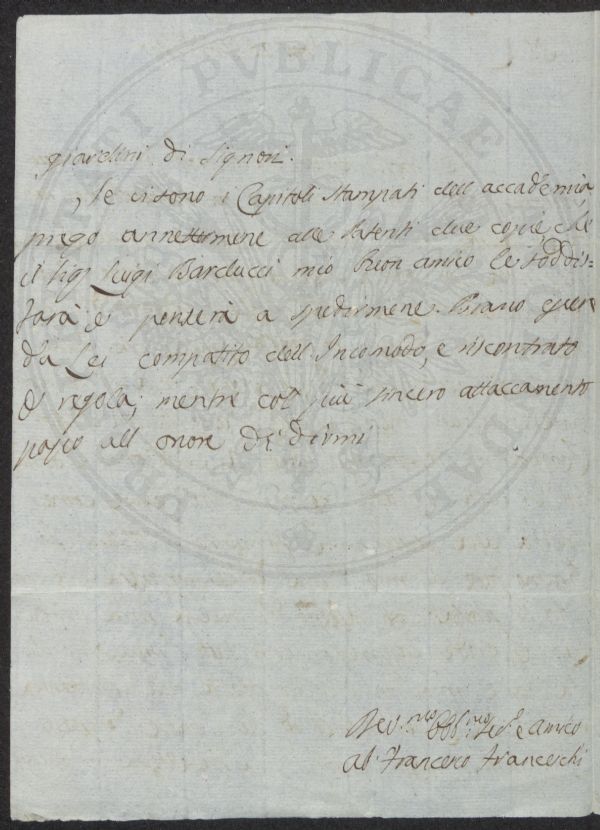 giardini di Signori.
, se ci sono i Capitoli stampati dell accademia,
prego annettermene alle Patenti due copie, che
il Sig. Luigi Barducci mio Buon amico le soddis=
farà e penserà a spedirmene. Bramo
da Lei compatito dell Incomodo, e riscontrato
di regola; mentre col più sincero attaccamento
passo all onore di dirmi
Dev.mo Obb.mo Ser.e e Amico
ab. Francesco Franceschi
PRO PVBLICAE